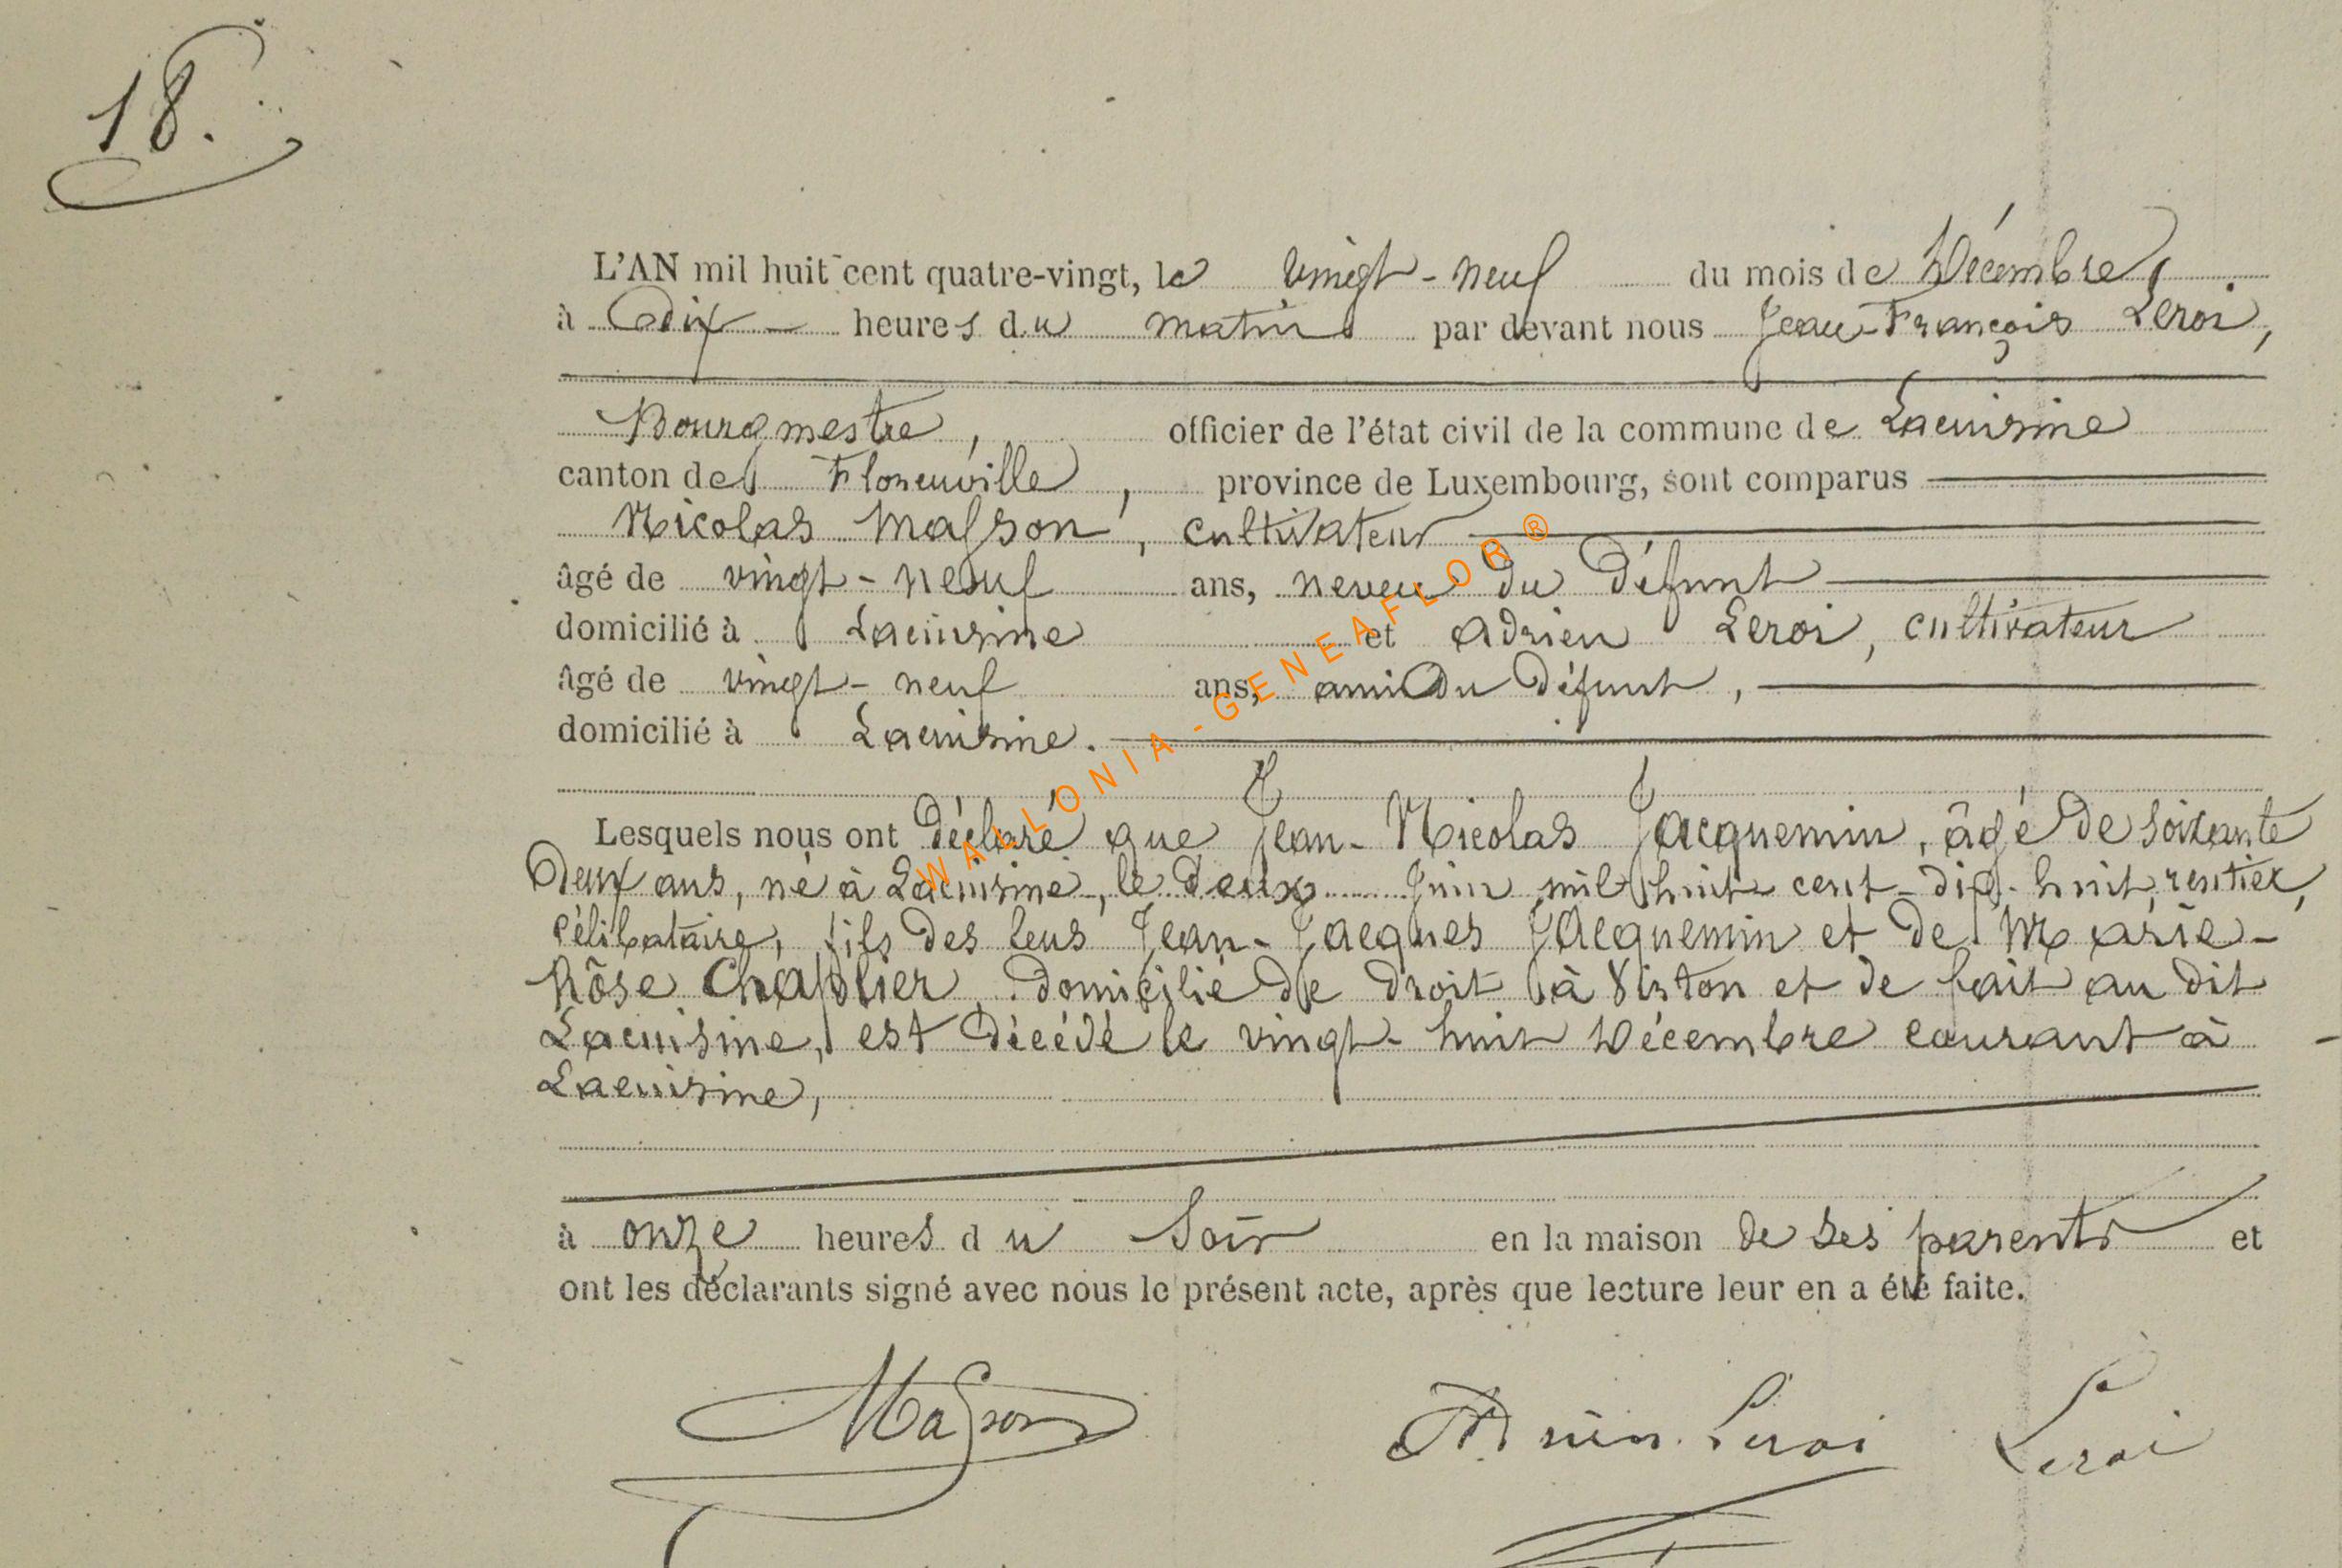 18.
L'AN mil huit cent quatre-vingt, le vingt-neuf du mois de Décembre
à dix heures du matin par devant nous Jean-François Leroi,
Bourgmestre, officier de l'état civil de la commune de Lacuisine
canton de Florenville, province de Luxembourg, sont comparus
Nicolas Masson, cultivateur
âgé de vingt-neuf ans, neveu du défunt
domicilié à Lacuisine et Adrien Leroi, cultivateur
âgé de vingt-neuf ans, ami du défunt,
domicilié à Lacuisine.
Lesquels nous ont déclaré que Jean-Nicolas Jacquemin, âgé de soixante
deux ans, né à Lacuisine, le deux Juin mil huit cent-dix-huit, rentier,
célibataire, fils des feus Jean-Jacques Jacquemin et de Marie-
Rôse Chaplier, domicilié de droit à Virton et de fait au dit
Lacuisine, est décédé le vingt-huit Décembre courant à
Lacuisine,
à onze heures du soir en la maison de ses parents et
ont les déclarants signé avec nous le présent acte, après que lecture leur en a été faite.
Masson Adrien Leroi Leroi
WALLONIA-GENEAFLOR®